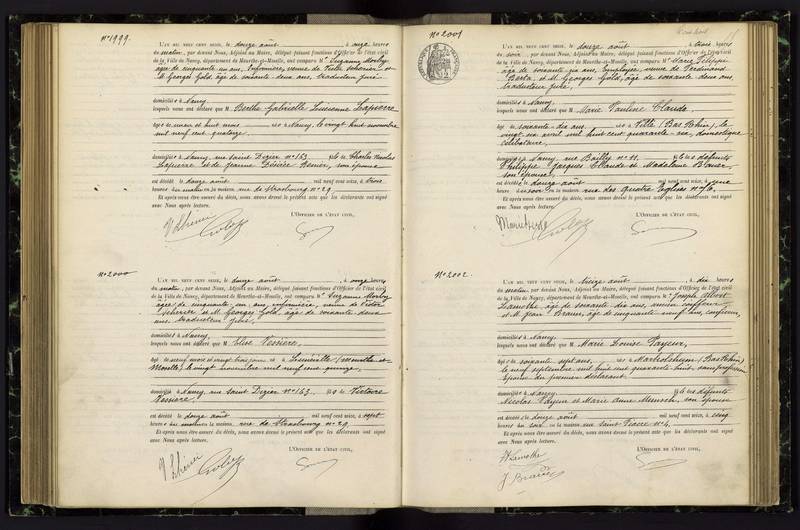 N° 1999.
L'AN MIL NEUF CENT SEIZE, le douze août à onze heures
du matin, par devant Nous, Adjoint au Maire, délégué faisant fonctions d'Officier de l'état civil
de la Ville de Nancy, département de Meurthe-et-Moselle, ont comparu Me Suzanne
âgée de cinquante un ans, infirmière, veuve de Victor et
M. Georges Gold, âgé de soixante deux ans, traducteur juré
domiciliés à Nancy
lesquels nous ont déclaré que M Berthe Gabrielle Lucienne Lapierre
âgée de un an et huit mois née à Nancy, le vingt huit novembre
mil neuf cent quatorze
domiciliée à Nancy, rue Saint Dizier n° 143 fille de Charles Nicolas
Lapierre et de Jeanne Désirée son épouse
est décédée le douze août mil neuf cent seize, à trois
heures du matin en la maison rue de Strasbourg n° 29
Et après nous être assuré du décès, nous avons dressé le présent acte que les déclarants ont signé
avec Nous après lecture.
L'OFFICIER DE L'ÉTAT CIVIL,
N° 2000
L'AN MIL NEUF CENT SEIZE, le douze août à onze heures
du matin, par devant Nous, Adjoint au Maire, délégué faisant fonctions d'Officier de l'état civil
de la Ville de Nancy, département de Meurthe-et-Moselle, ont comparu Me Suzanne
âgée de cinquante un ans, infirmière, veuve de Victor
et M. Georges Gold, âgé de soixante deux
ans, traducteur juré
domiciliés à Nancy
lesquels nous ont déclaré que M Elise Vessière
âgée de neuf mois et vingt trois jours née à Lunéville (Meurthe et
Moselle) le vingt novembre mil neuf cent quinze
domiciliée à Nancy, rue Saint Dizier n° 143 fille de Victoire
Vessière
est décédée le douze août mil neuf cent seize, à sept
heures du matin en la maison rue de Strasbourg n° 29
Et après nous être assuré du décès, nous avons dressé le présent acte que les déclarants ont signé
avec Nous après lecture.
L'OFFICIER DE L'ÉTAT CIVIL,
N° 2001
L'AN MIL NEUF CENT SEIZE, le douze août à trois heures
du soir, par devant Nous, Adjoint au Maire, délégué faisant fonctions d'Officier de l'état civil
de la Ville de Nancy, département de Meurthe-et-Moselle, ont comparu Me Marie
âgée de soixante six ans, employée, veuve de Ferdinand
et M. Georges Gold, âgé de soixante deux ans,
traducteur juré,
domiciliés à Nancy
lesquels nous ont déclaré que M Marie Pauline Claude
âgée de soixante dix ans née à Villé (Bas Rhin), le
vingt six avril mil huit cent quarante six, domestique
célibataire
domiciliée à Nancy, rue Bailly n° 11 fille des défunts
Philippe Jacques Claude et Madeleine
son épouse
est décédée le douze août mil neuf cent seize, à une
heure du soir en la maison rue des Quatre Eglises
Et après nous être assuré du décès, nous avons dressé le présent acte que les déclarants ont signé
avec Nous après lecture.
L'OFFICIER DE L'ÉTAT CIVIL,
N° 2002.
L'AN MIL NEUF CENT SEIZE, le treize août à dix heures
du matin, par devant Nous, Adjoint au Maire, délégué faisant fonctions d'Officier de l'état civil
de la Ville de Nancy, département de Meurthe-et-Moselle, ont comparu M. Joseph Albert
Lamothe âgé de soixante dix ans, ancien coiffeur
et M. Jean Braun, âgé de cinquante neuf ans, coiffeur,
domiciliés à Nancy
lesquels nous ont déclaré que M Marie Louise Payeur,
âgée de soixante sept ans, née à (Bas Rhin)
le neuf septembre mil huit cent quarante huit, sans profession
épouse du premier déclarant
domiciliée à Nancy fille des défunts
Nicolas Payeur et Marie Anne son épouse
est décédée le douze août mil neuf cent seize, à cinq
heures du soir en la maison rue Saint n° 4,
Et après nous être assuré du décès, nous avons dressé le présent acte que les déclarants ont signé
avec Nous après lecture.
L'OFFICIER DE L'ÉTAT CIVIL,
Lamothe
J. Braun